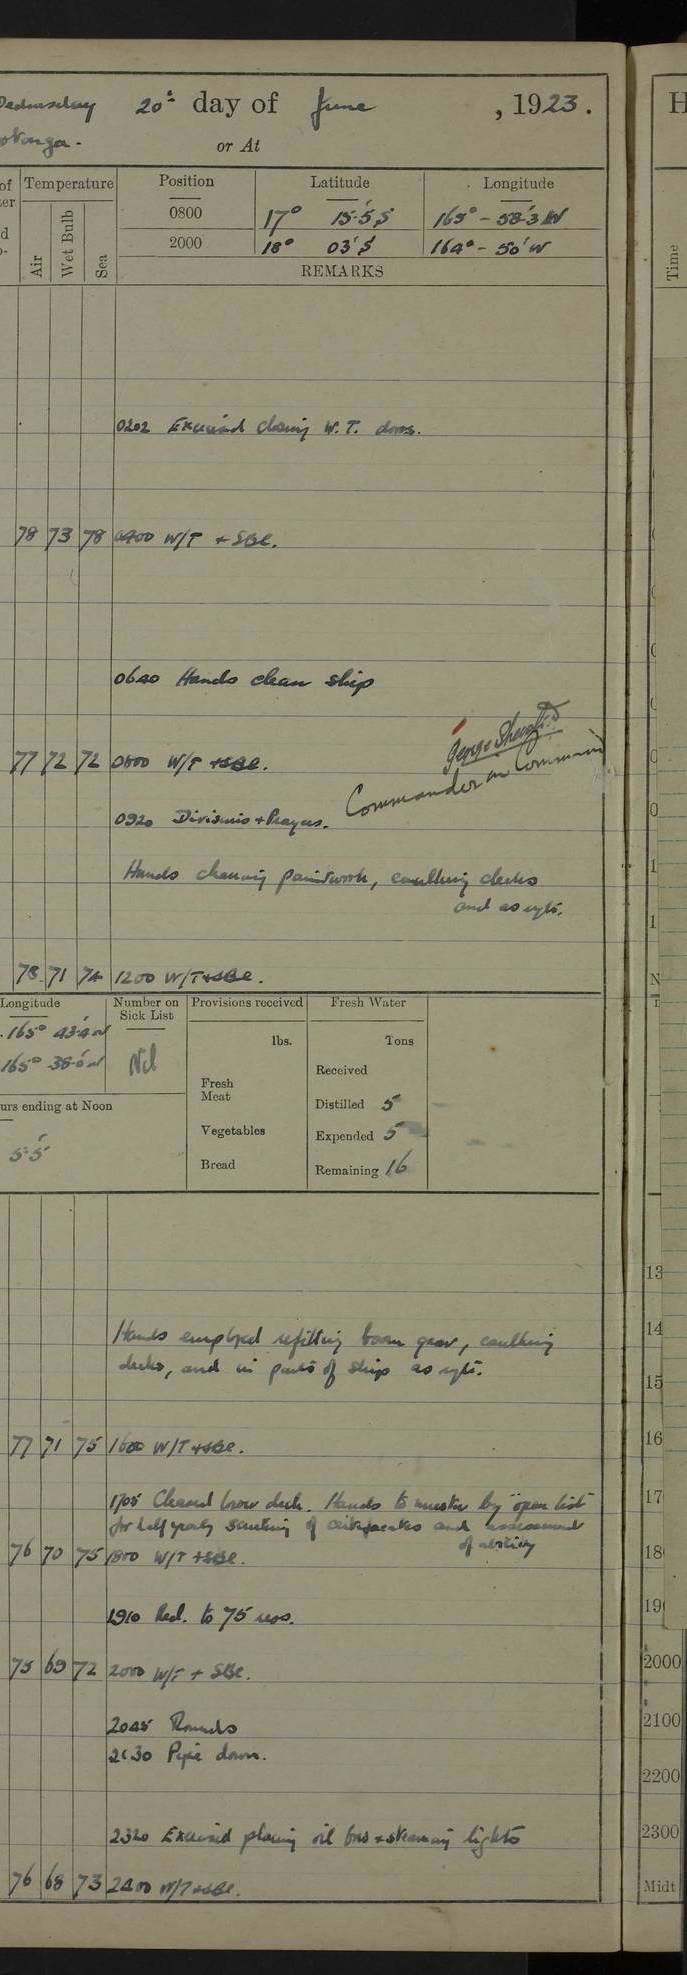 Wednesday 20th day of June , 1923.
or At
of Temperature Position Latitude Longitude
Air Wet Bulb Sea
0800 17° 15.5'S 165° - 58.3'W
2000 18° 03'S 164° - 50'W
REMARKS
Time
0202 Exercised closing W.T. doors.
78 73 78 0400 W/T + SBE.
0640 Hands clean ship
77 72 72 0800 W/T + SBE.
George
Commander in Command
0920 Divisions + Prayers.
Hands cleaning paintwork, caulking decks
and as reqte.
78 71 74 1200 W/T + SBE.
Longitude Number on Sick List Provisions received Fresh Water
165° 43.4'W
165° 38.0'W Nil
lbs. Tons
Fresh Meat Received
urs ending at Noon Distilled 5
Vegetables Expended 5
5.5'
Bread Remaining 16
Hands employed refitting boom gear, caulking
decks, and in parts of ship as reqte.
77 71 75 1600 W/T + SBE.
1705 Cleared lower deck. Hands to muster by "open list"
for half yearly scrutiny of certificates and assessment
of ability
76 70 75 1800 W/T + SBE.
1910 Red. to 75 revs.
75 69 72 2000 W/T + SBE.
2045 Rounds
2130 Pipe down.
2320 Exercised placing oil bow + steaming lights
76 68 73 2400 W/T + SBE.
H
N
13
14
15
16
17
18
19
2000
2100
2200
2300
Midt